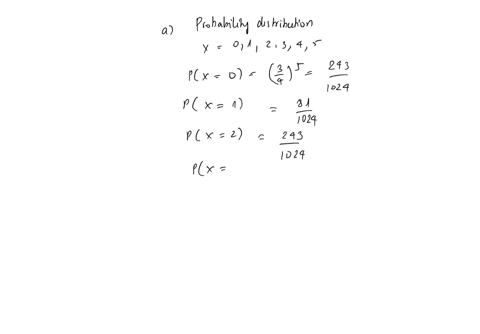 a) Probability distribution
x = 0, 1, 2, 3, 4, 5
P(x = 0) = (3/4)^5 = 243/1024
P(x = 1) = 81/1024
P(x = 2) = 243/1024
P(x =